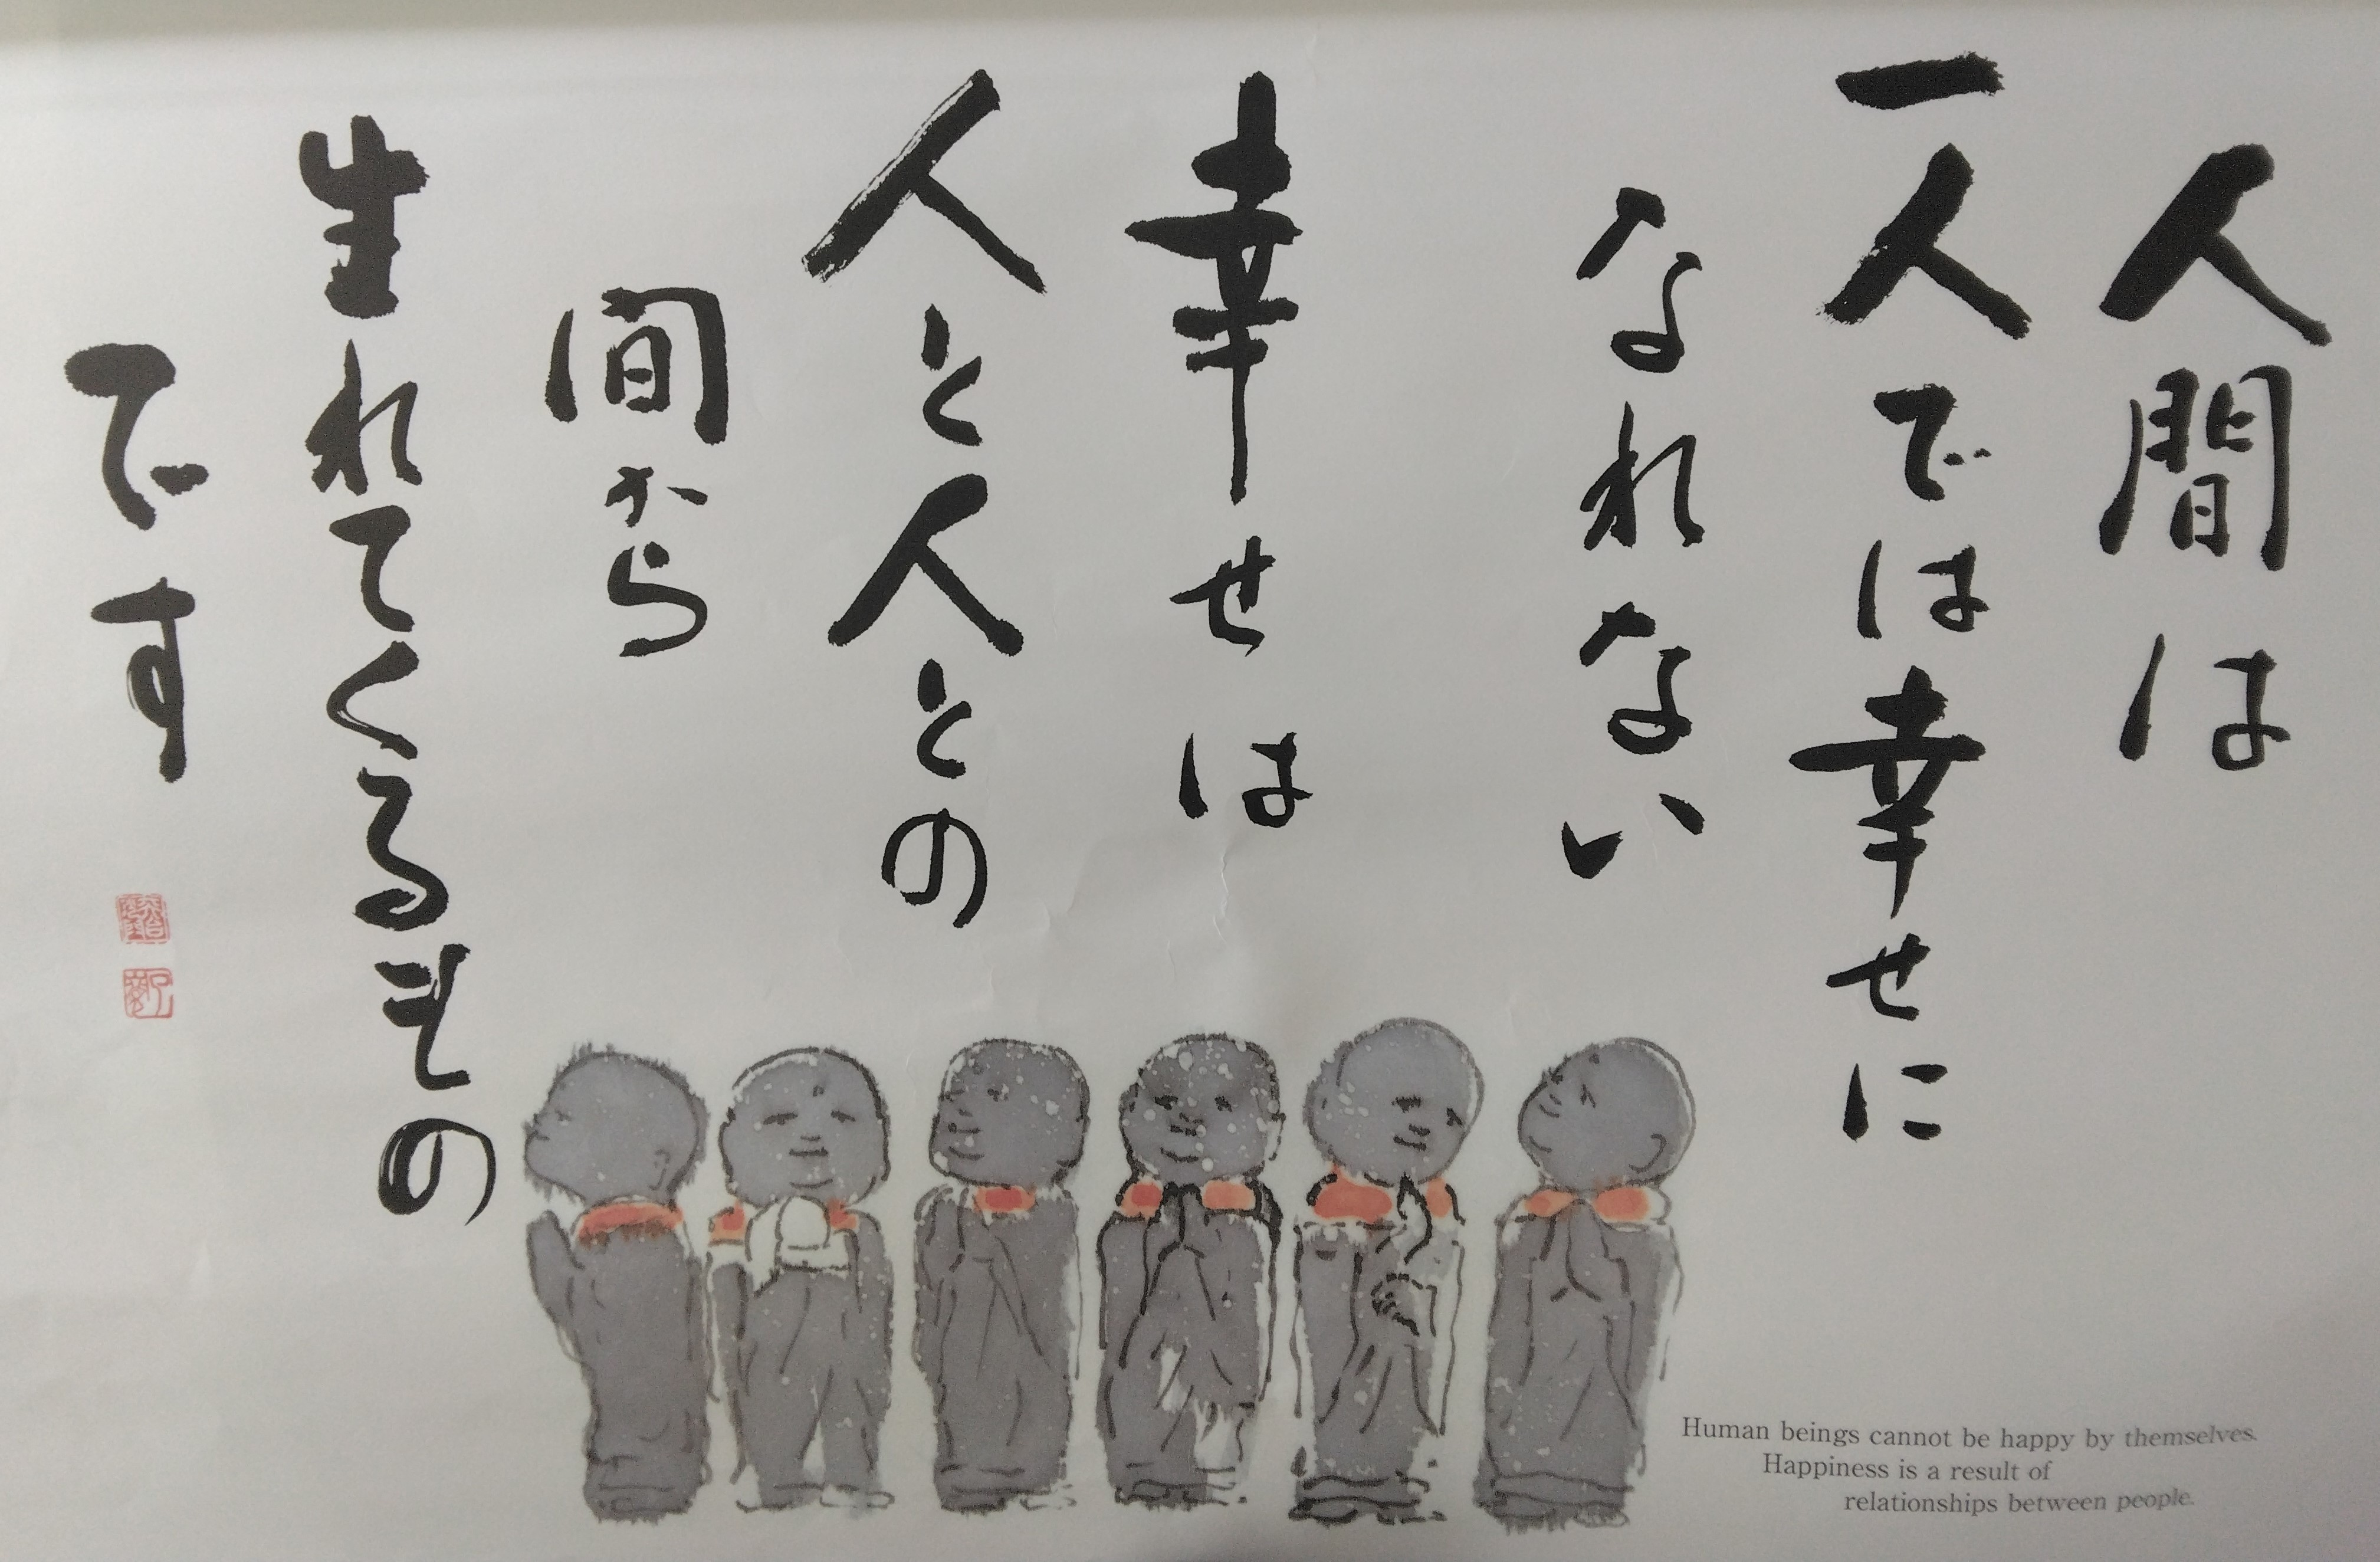 人間は
一人では幸せに
なれない
幸せは
人と人との
間から
生れてくるもの
です
Human beings cannot be happy by themselves.
Happiness is a result of
relationships between people.